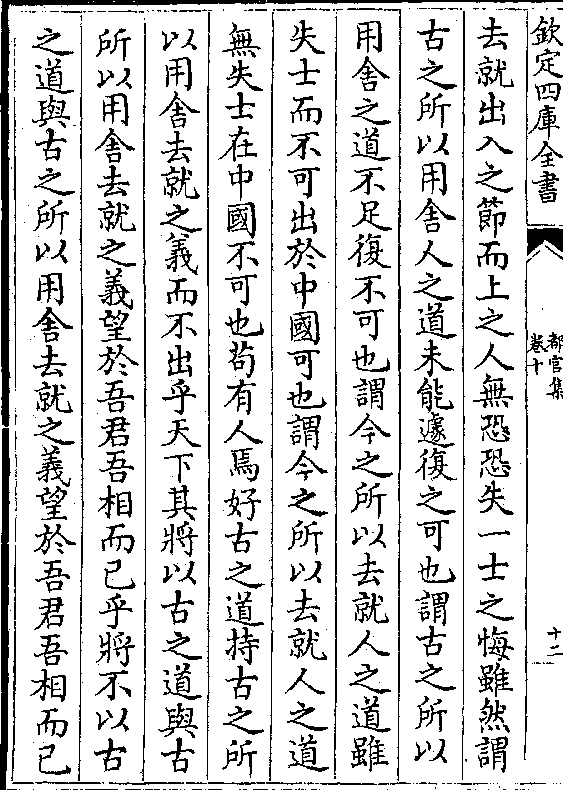 欽定四庫全書
都官集
卷十
十二
去就出入之節而上之人無恐恐失一士之悔雖然謂
古之所以用舍人之道未能遽復之可也謂古之所以
用舍之道不足復不可也謂今之所以去就人之道雖
失士而不可出於中國可也謂今之所以去就人之道
無失士在中國不可也茍有人焉好古之道持古之所
以用舍去就之義而不出乎天下其將以古之道與古
所以用舍去就之義望於吾君吾相而已乎將不以古
之道與古之所以用舍去就之義望於吾君吾相而已